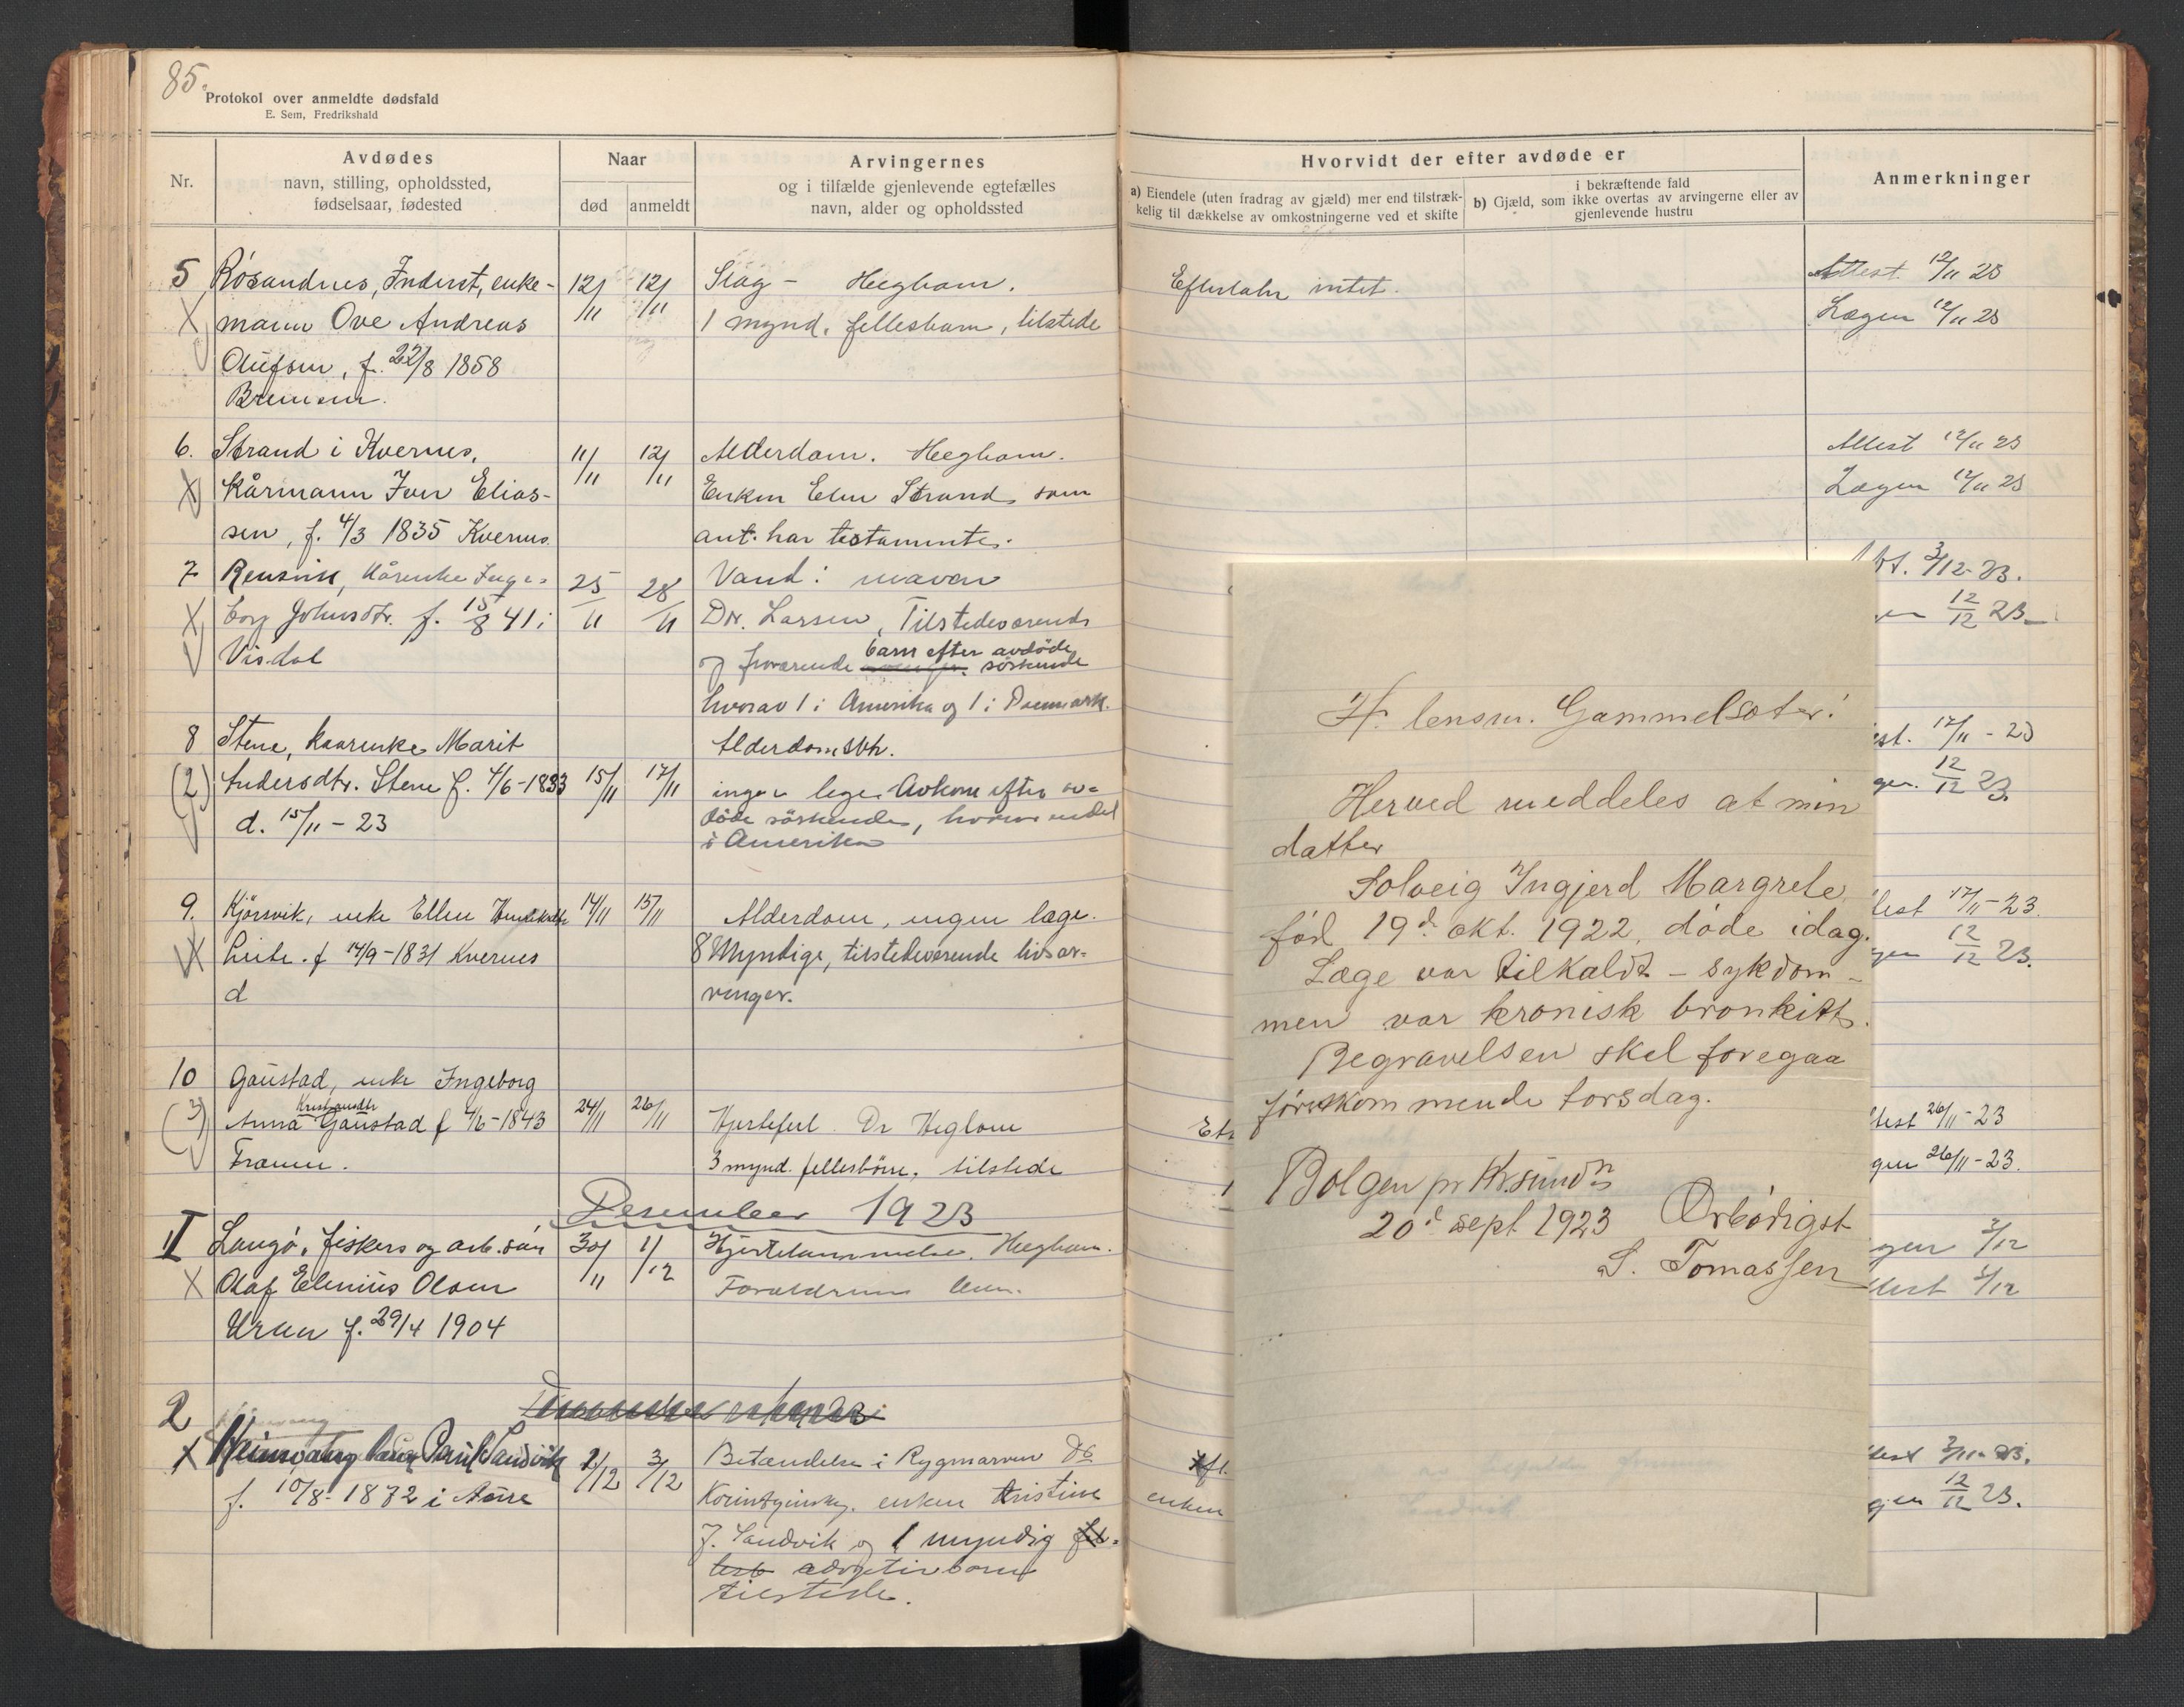 85.
Protokol over anmeldte dødsfald
E. Sem, Fredrikshald
Nr.
Avdødes
navn, stilling, opholdssted,
fødselsaar, fødested
Naar
død
anmeldt
Arvingernes
og i tilfælde gjenlevende egtefælles
navn, alder og opholdssted
5 Røsandnes, Inderst, enke-
mann Ove Andreas
Olufsen, f. 22/8 1858
Bremsnes.
12/11 12/11
Slag - Hegbom.
1 mynd. fellesbarn, tilstede
6. Strand i Kvernes,
Kårmann Iver Elias-
sen, f. 4/3 1835 Kvernes
11/11 12/11
Alderdom. Hegbom.
Enken Elen Strand, som
ant. har testamente.
7 Rensvik, Kårenke Inge-
borg Johnsdtr. f. 15/8 41 i
Visdal
25/11 28/11
Vand i maven
Dr. Larsen, Tilstedeværende
og fraværende barn efter avdøde søskende
hvorav 1 i Amerika og 1 i Danmark.
8 Stene, kaarenke Marit
(2) Andersdtr. Stene f. 4/6-1833
d. 15/11 - 23
15/11 17/11
Alderdomssvh.
ingen lege. Avkom efter av-
døde søskende, hvorav endel
i Amerika
9. Kjörsvik, enke Ellen
f 14/9-1831 Kvernes
d
14/11 15/11
Alderdom, ingen læge.
8 Myndige, tilstedeværende livsar-
vinger.
10 Gaustad, enke Ingeborg
(3) Anna Gaustad f 4/6-1843
Fræna.
24/11 26/11
Hjertefeil. Dr Heglom
3 mynd. fellesbörn, tilstede
Desember 1923
1 Langö, fiskers og arb. sön
Olaf Elenius Olsen
f. 29/4 1904
30/11 1/12
Hjertelammelse. Hegbom.
Forældrene
2
Paul Sandvik
f. 10/8-1872 i Aure
1/12 3/12
Betændelse i Rygmarven Dr
enken Kristine
J. Sandvik og 1 myndig
adoptivbarn
tilstede.
Hvorvidt der efter avdøde er
a) Eiendele (uten fradrag av gjæld) mer end tilstræk-
kelig til dækkelse av omkostningerne ved et skifte
b) Gjæld, som ikke overtas av arvingerne eller av
i bekræftende fald
gjenlevende hustru
Anmerkninger
Efterlater intet.
Attest 12/11 23
Lægen 12/11 23
Attest 12/11 23
Lægen 12/11 23
3/12-23.
12/12 23
17/11 - 23
12/12 23
17/11-23.
12/12 23.
26/11-23
26/11-23.
3/12
12/12 23.
enken
H. lensm. Gammelsæter!
Herved meddeles at min
datter
Solveig Ingjerd Margrete
född 19d okt. 1922, döde idag.
Læge var tilkaldt - sykdom-
men var kronisk bronkitt.
Begravelsen skel foregaa
förstkommende torsdag.
Bolgen pr Kr.sundn
20d sept 1923 Ærbödigst
S. Tomassen